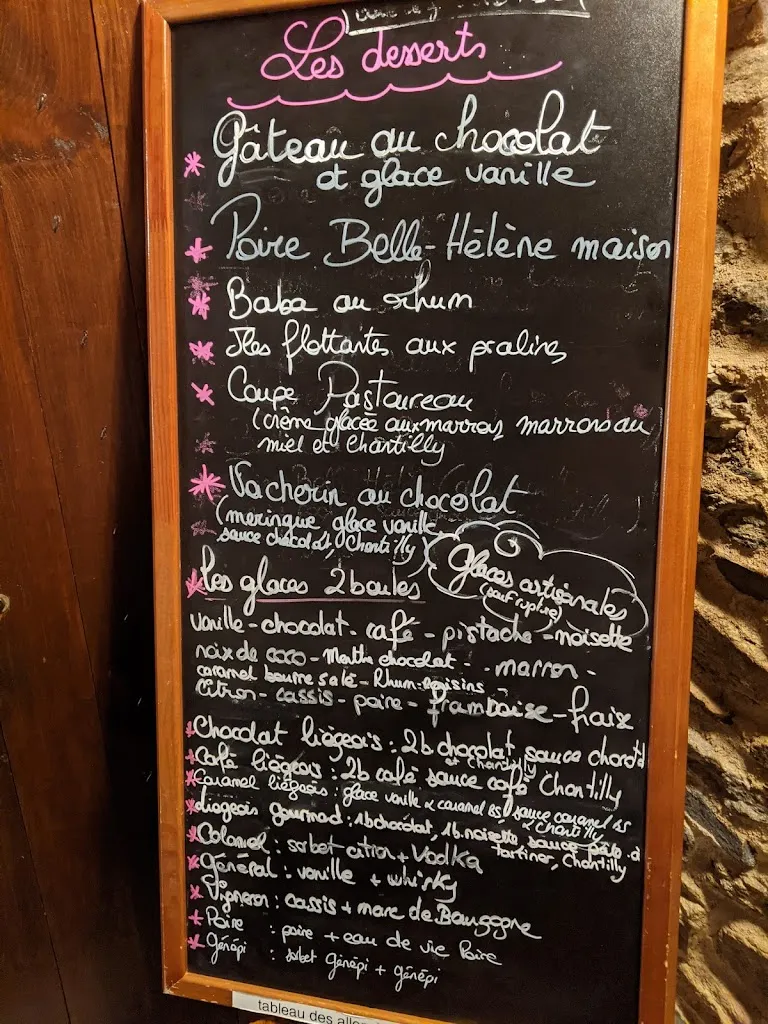 Les desserts
Gâteau au chocolat
et glace vanille
Poire Belle-Hélène maison
Baba au rhum
Iles flottantes aux pralines
Coupe Pastoureau
(crème glacée aux marrons, marrons au
miel et Chantilly
Vacherin au chocolat
(meringue, glace vanille,
sauce chocolat, Chantilly)
Glaces artisanales
(sauf rupture)
Les glaces 2 boules
vanille - chocolat - café - pistache - noisette
noix de coco - Menthe chocolat - - marron -
caramel beurre salé - Rhum-Raisins -
Citron - cassis - poire - framboise - fraise
Chocolat liégeois : 2b chocolat, sauce chocolat
et Chantilly
Café liégeois : 2b café sauce café Chantilly
Caramel liégeois : glace vanille & caramel BS, sauce caramel BS
& Chantilly
Liégeois gourmand : 1b chocolat, 1b noisette, sauce pâte à
tartiner, Chantilly
Colonel : sorbet citron + Vodka
Général : vanille + whisky
Vigneron : cassis + marc de Bourgogne
Poire : poire + eau de vie Poire
Génépi : sorbet Génépi + Génépi
tableau des